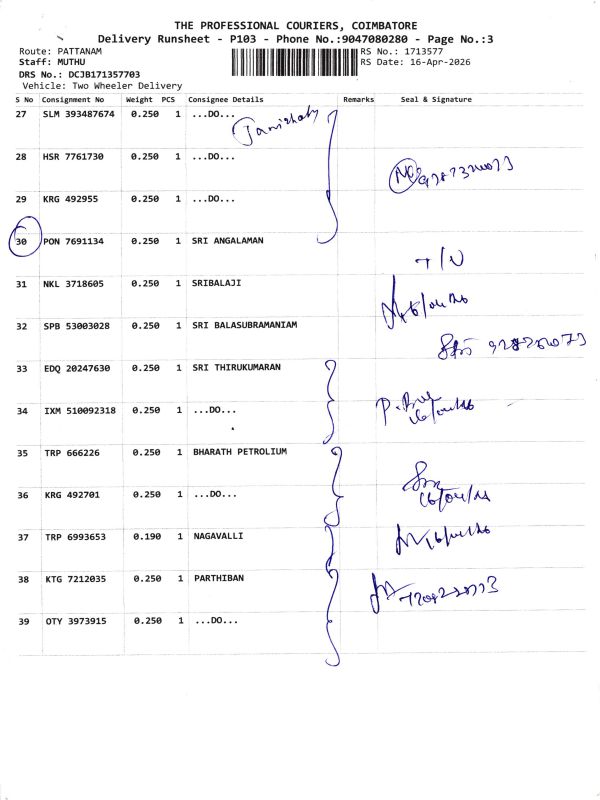 THE PROFESSIONAL COURIERS, COIMBATORE
Delivery Runsheet - P103 - Phone No.:9047080280 - Page No.:3
Route: PATTANAM
RS No.: 1713577
Staff: MUTHU
RS Date: 16-Apr-2026
DRS No.: DCJB171357703
Vehicle: Two Wheeler Delivery
S No Consignment No Weight PCS Consignee Details Remarks Seal & Signature
27 SLM 393487674 0.250 1 ...DO...
28 HSR 7761730 0.250 1 ...DO...
29 KRG 492955 0.250 1 ...DO...
30 PON 7691134 0.250 1 SRI ANGALAMAN
31 NKL 3718605 0.250 1 SRIBALAJI
16/04/26
32 SPB 53003028 0.250 1 SRI BALASUBRAMANIAM
33 EDQ 20247630 0.250 1 SRI THIRUKUMARAN
34 IXM 510092318 0.250 1 ...DO...
16/04/26
35 TRP 666226 0.250 1 BHARATH PETROLIUM
36 KRG 492701 0.250 1 ...DO...
16/04/26
37 TRP 6993653 0.190 1 NAGAVALLI
16/04/26
38 KTG 7212035 0.250 1 PARTHIBAN
39 OTY 3973915 0.250 1 ...DO...